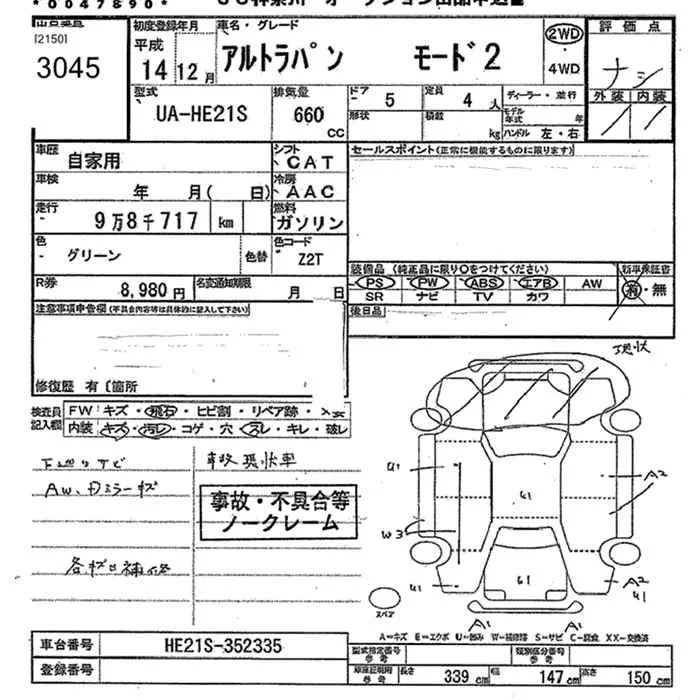 *0047890*
[2150]
3045
初度登録年月
平成
14 12月
車名・グレード
アルトラパン モード2
2WD
・
4WD
評価点
ナシ
外装 内装
型式
UA-HE21S
排気量
660
CC
ドア
5
定員
4 人
形状
積載
kg
ディーラー・並行
モデル年式 年
ハンドル 左・右
車歴
自家用
シフト
CAT
車検
年 月( 日)
冷房
AAC
走行
9万8千717 km
燃料
ガソリン
色
グリーン
色替
色コード
Z2T
R券
8,980円
名変通知期限
月 日
セールスポイント(正常に機能するものに限ります)
装備品(純正品に限り○をつけてください)
新車保証書
PS PW ABS エアB AW
有・無
SR ナビ TV カワ
後日品
注意事項申告欄(不具合内容等は具体的に記入して下さい)
修復歴 有〔箇所
現状
検査員
記入欄
FW キズ・飛石・ヒビ割・リペア跡・
内装 キズ・汚レ・コゲ・穴・スレ・キレ・破レ
事故現状車
事故・不具合等
ノークレーム
各キズ凹補修
U1
A2
W3
U1
A2
U1
A1
A1
スペア
A=キズ E=エクボ U=凹み W=補修跡 S=サビ C=腐食 XX=交換済
車台番号
HE21S-352335
登録番号
型式指定番号
参考
類別区分番号
参考
車庫証明用
参考
長さ 339 cm
幅 147 cm
高さ 150 cm